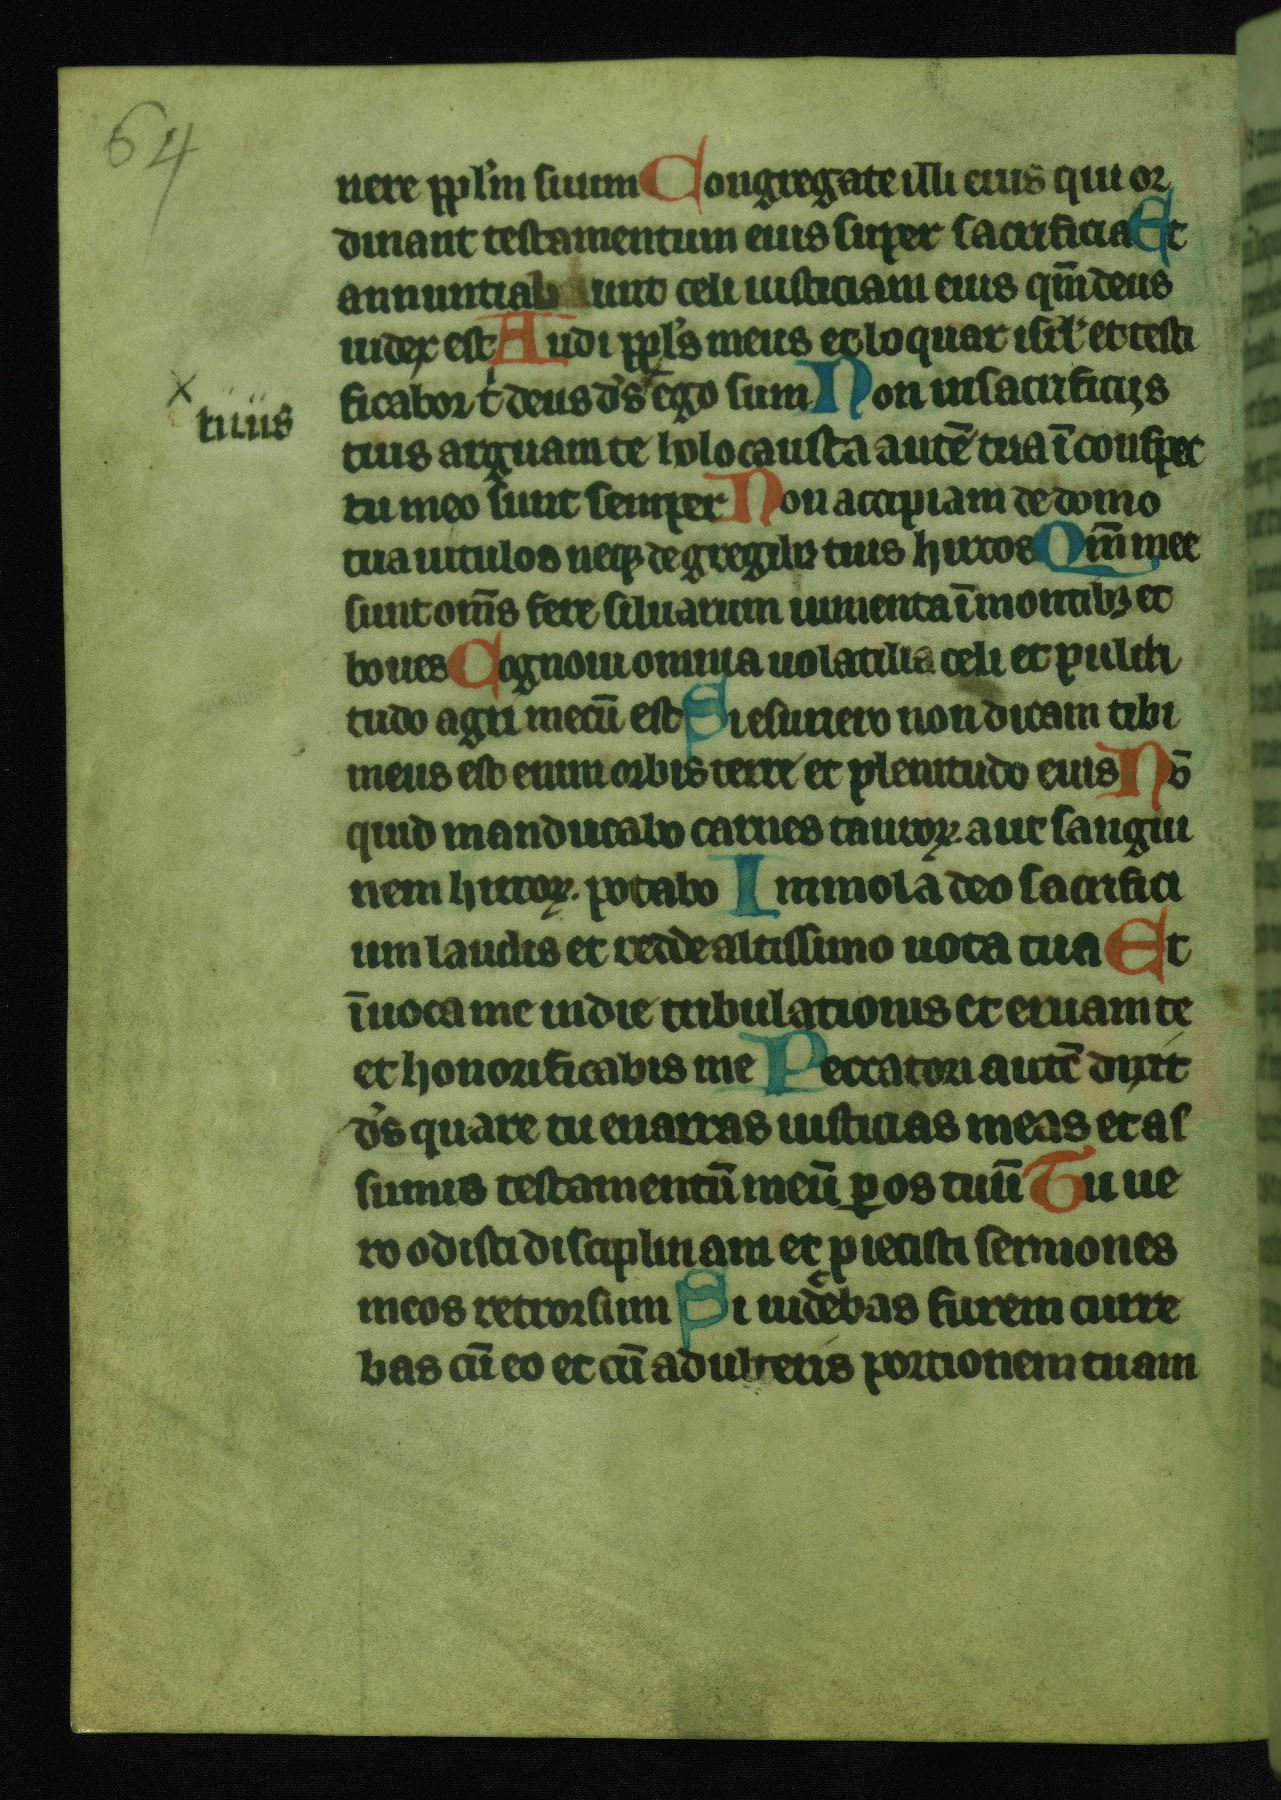 64
nere pplm̄ suum Congregate illi eius qui or
dinant testamentum eius super sacrificia Et
annuntiab unt celi iusticiam eius qm̄ deus
iudex est Audi ppl's meus et loquar isrl' et testi
ficabor t' deus d's ego sum Non in sacrificijs
tuis
tuis arguam te holocausta autē tua ī conspec
tu meo sunt semper Non accipiam de domo
tua uitulos neqꝫ de gregibꝫ tuis hircos Qm̄ mee
sunt om̄s fere siluarum iumenta ī montibꝫ et
boues Cognoui omnia uolatilia celi et pulcri
tudo agri mecū est Si esuriero non dicam tibi
meus est enim orbis terre et plenitudo eius Nū
quid manducabo carnes tauroꝝ. aut sangui
nem hircoꝝ. potabo Immola deo sacrifici
um laudis et redde altissimo uota tua Et
īuoca me in die tribulationis et eruam te
et honorificabis me Peccatori autē dixit
d's quare tu enarras iusticias meas et as
sumis testamentū meū ꝑ os tuū Tu ue
ro odisti disciplinam et piecisti sermones
meos retrorsum Si uidebas furem curre
bas cū eo et cū adulteris portionem tuam